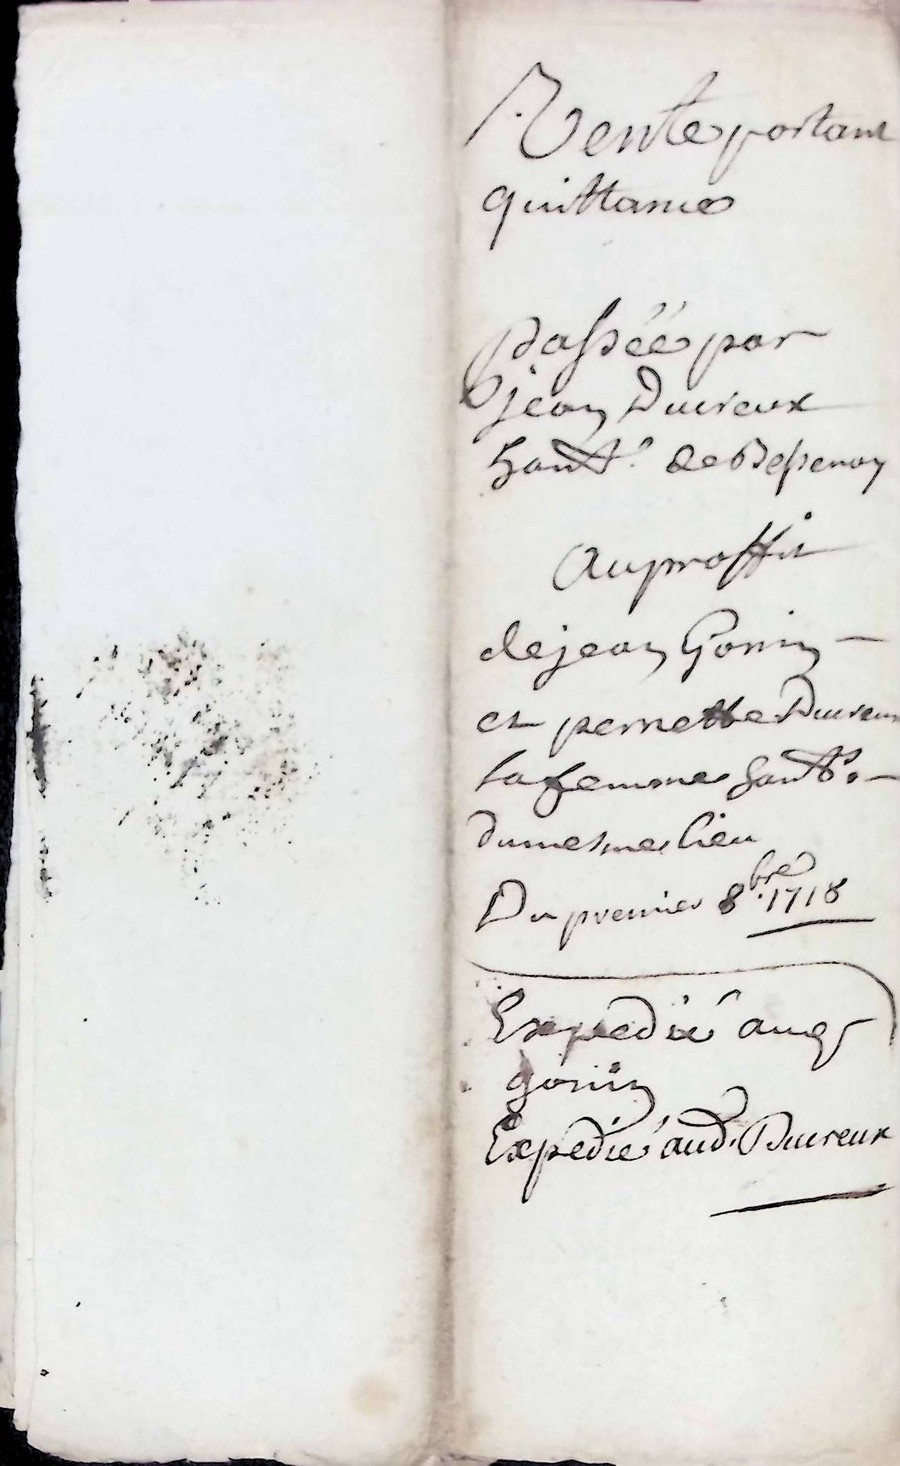 Vente portant
quittance
passée par
jean Ducreux
habt. de Bessenay
Au proffit
de jean Gonin
et pernette Ducreux
sa femme habts.
du mesme lieu
Du premier 8bre. 1718
Expedié aud
gonin
Expedié aud. Ducreux